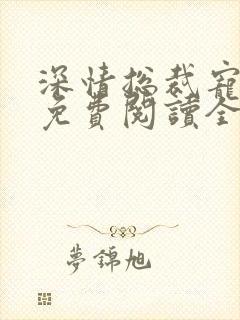 深情总裁寵
免費閱讀全
夢錦旭